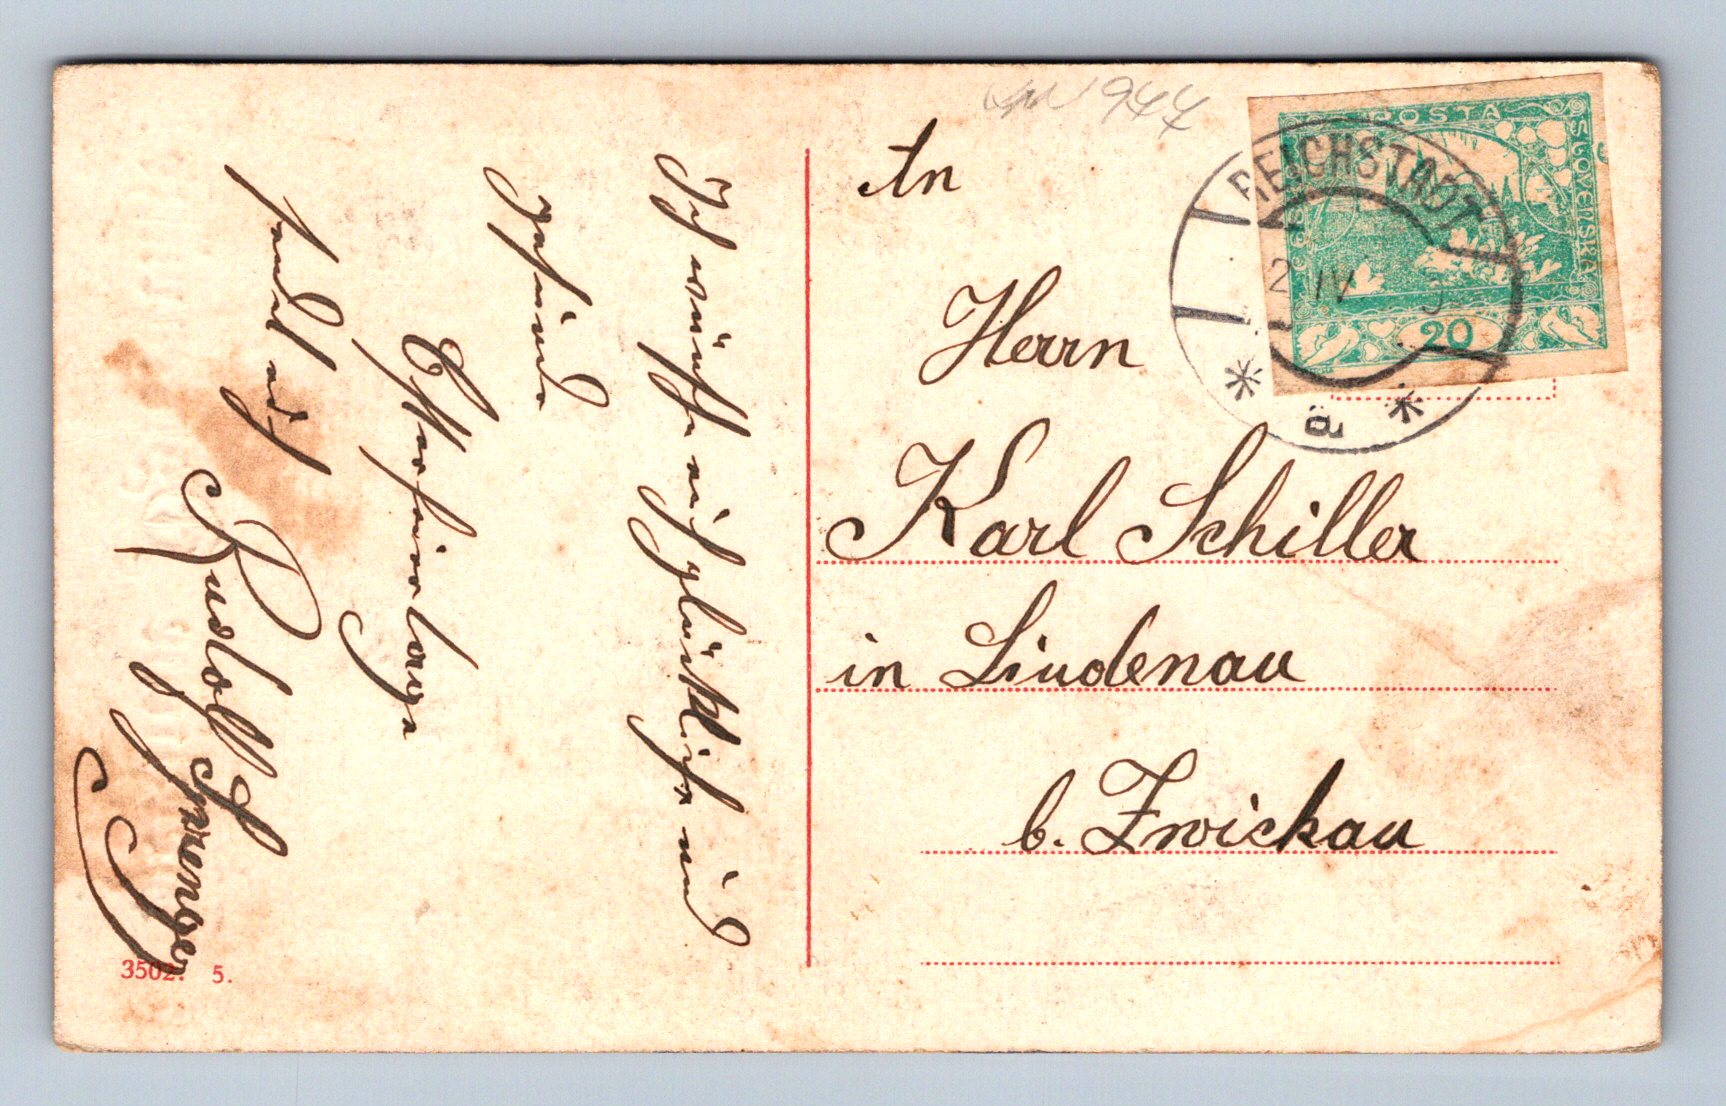 An
Herrn
Karl Schiller
in Lindenau
b. Zwickau
Ich wünsche euch glückliche und
gesunde
Osterfeiertage
Rudolf Sprenger
944
POSTA
SLOVENSKÁ
20
REICHSTADT
2 IV
a
3502. 5.